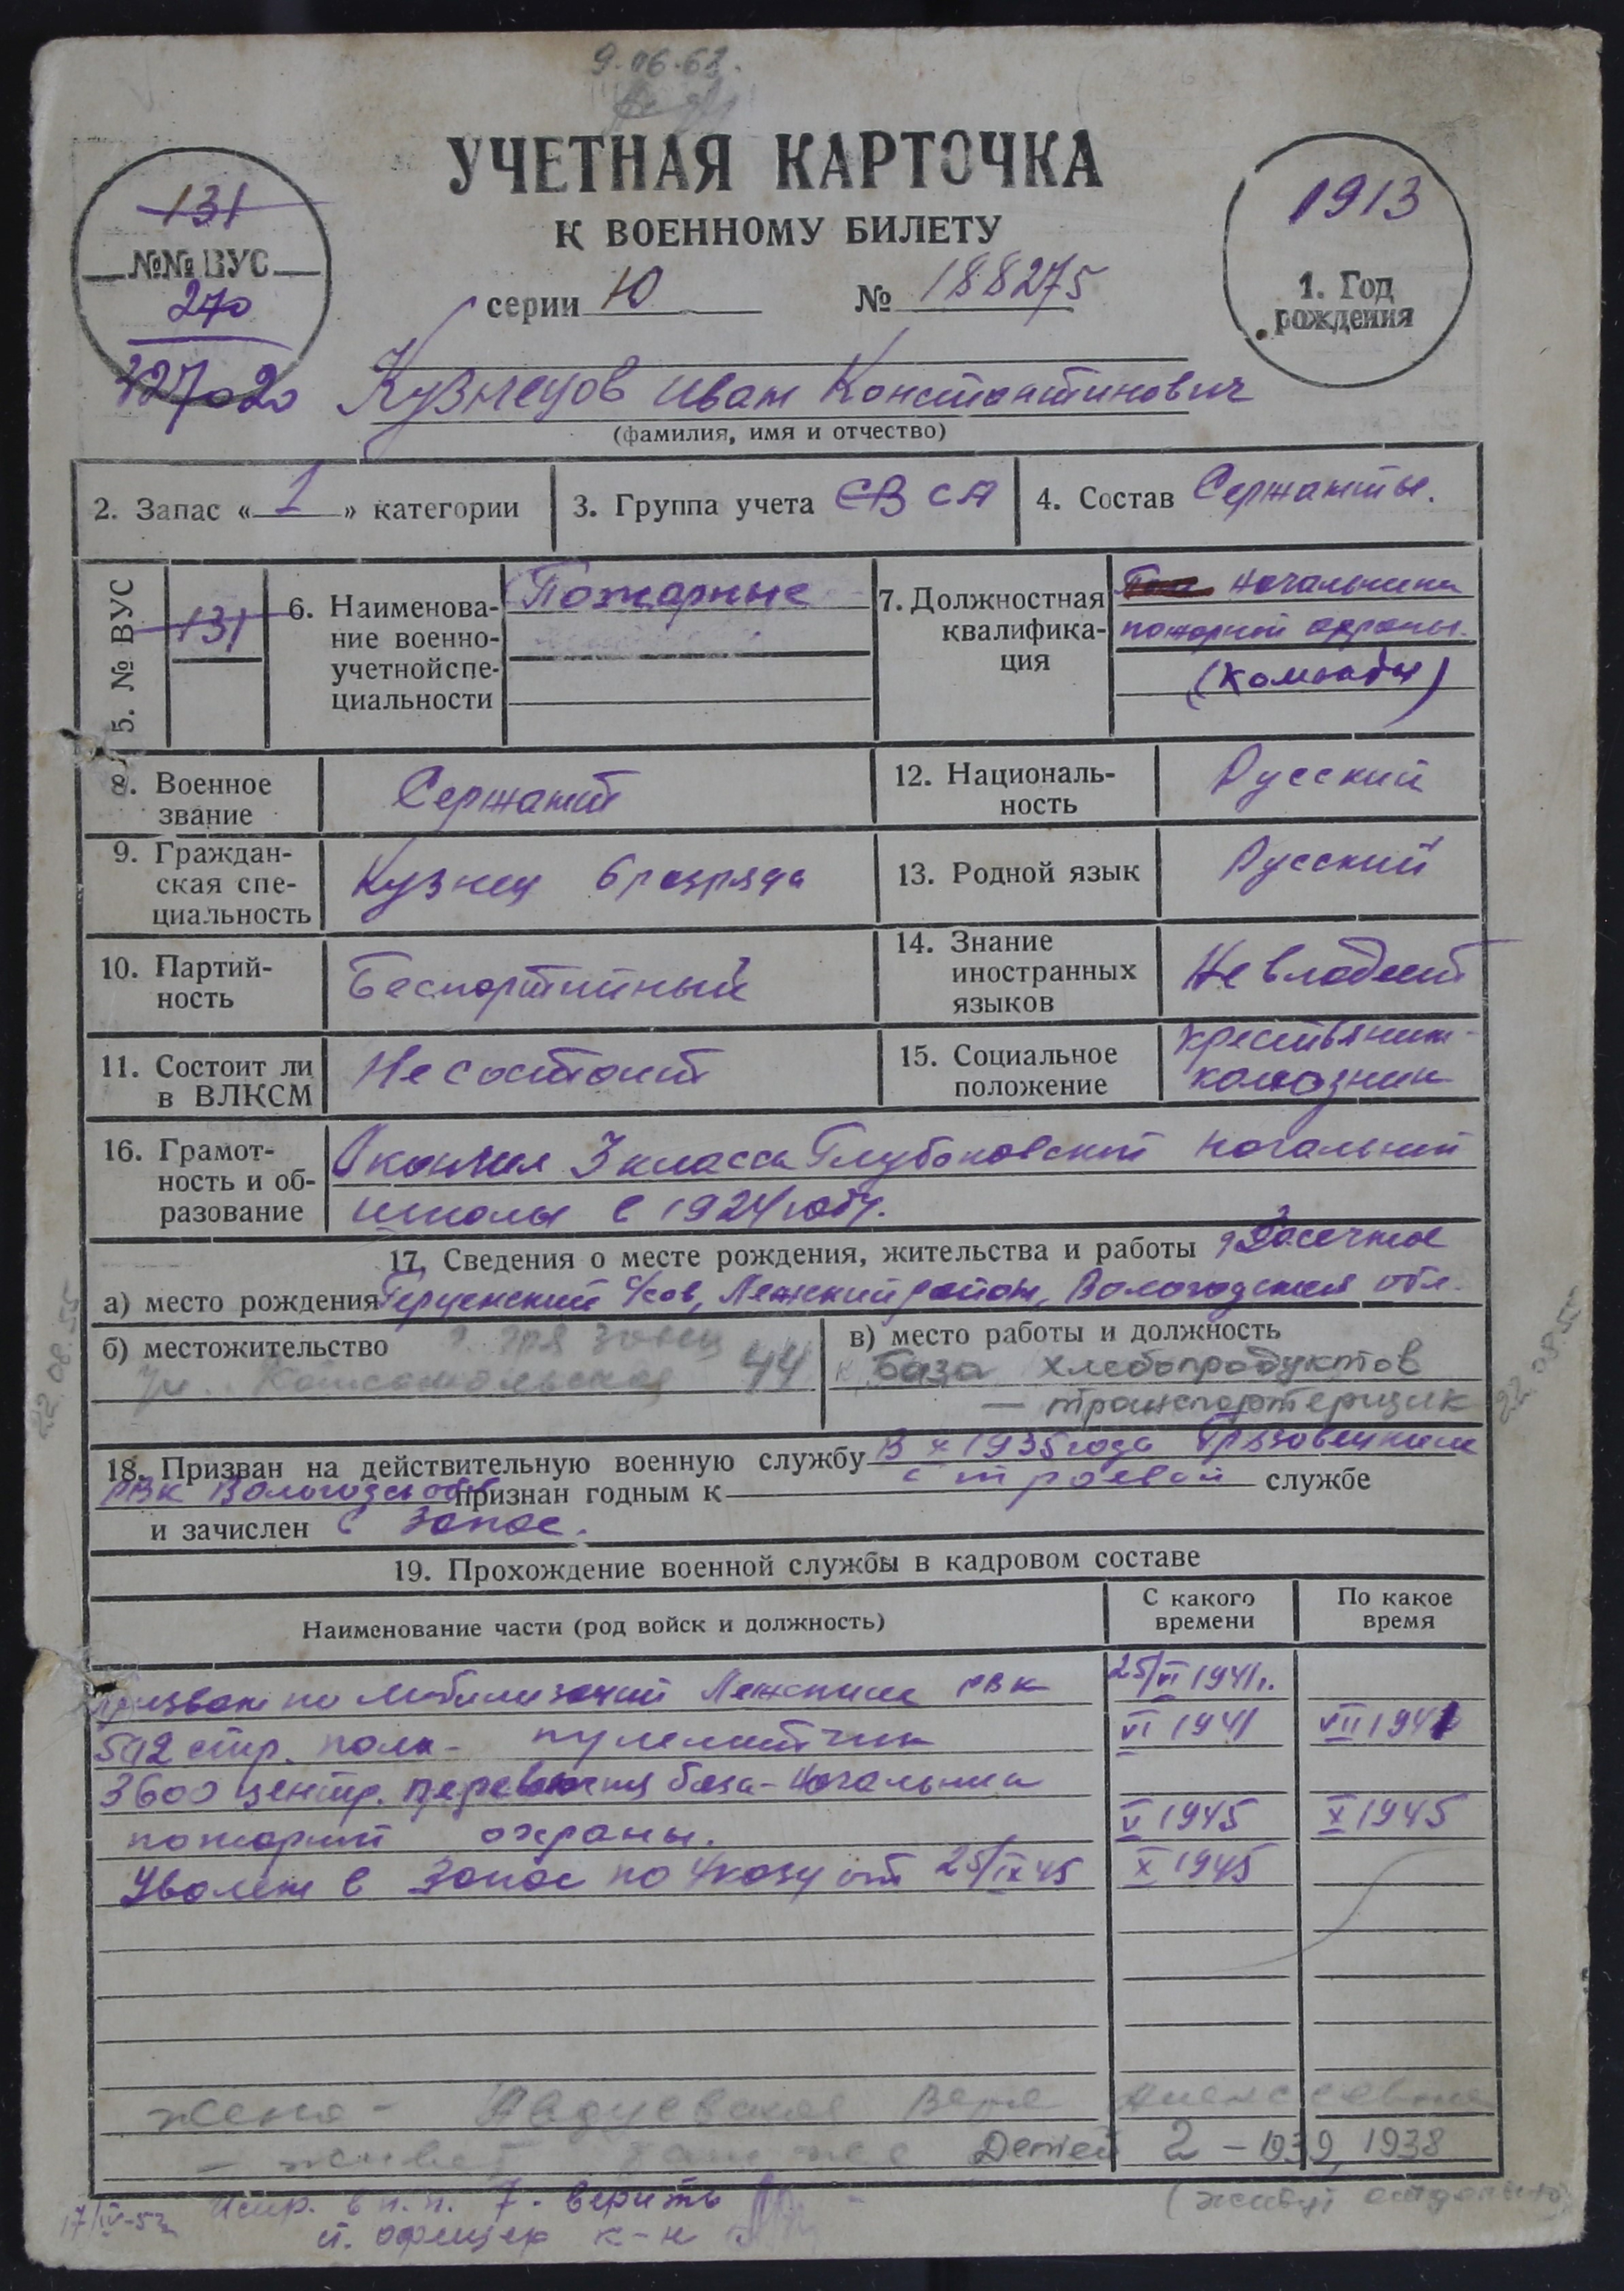 9.06.62.
УЧЕТНАЯ КАРТОЧКА
К ВОЕННОМУ БИЛЕТУ
серии Ю № 188275
131
№№ ВУС
270
327020
1913
1. Год
рождения
Кузнецов Иван Константинович
(фамилия, имя и отчество)
2. Запас « 1 » категории
3. Группа учета СВ СА
4. Состав Сержанты.
5. № ВУС
131
6. Наименова-
ние военно-
учетной спе-
циальности
Пожарные
7. Должностная
квалифика-
ция
Начальника
пожарной охраны.
(команды)
8. Военное
звание
Сержант
12. Националь-
ность
Русский
9. Граждан-
ская спе-
циальность
Кузнец 6 разряда
13. Родной язык
Русский
10. Партий-
ность
Беспартийный
14. Знание
иностранных
языков
Не владеет
11. Состоит ли
в ВЛКСМ
Не состоит
15. Социальное
положение
крестьянин-
колхозник
16. Грамот-
ность и об-
разование
Окончил 3 класса Глубоковской начальной
школы в 1924 году.
17. Сведения о месте рождения, жительства и работы
а) место рождения с/сов, Лежский район, Вологодская обл.
б) местожительство г. Грязовец
ул. Комсомольская 44
в) место работы и должность
База хлебопродуктов
— транспортерщик
22.08.55
22.08.55
18. Призван на действительную военную службу В X 1935 года Грязовецким
РВК Вологодс обл признан годным к строевой службе
и зачислен в запас.
19. Прохождение военной службы в кадровом составе
Наименование части (род войск и должность)
С какого
времени
По какое
время
Призван по мобилизаций Лежским РВК 25/VI 1941г.
592 стр. полк - пулеметчик VI 1941 VII 1941
3600 центр. перевалочная база - Начальник
пожарной охраны. V 1945 X 1945
Уволен в запас по Указу от 25/IX 45 X 1945
жена - Вера Алексеевна
- живет там же Детей 2 - 1939, 1938
(живут отдельно)
17/IV-52 Испр. в п.п. 7. верить
к-н